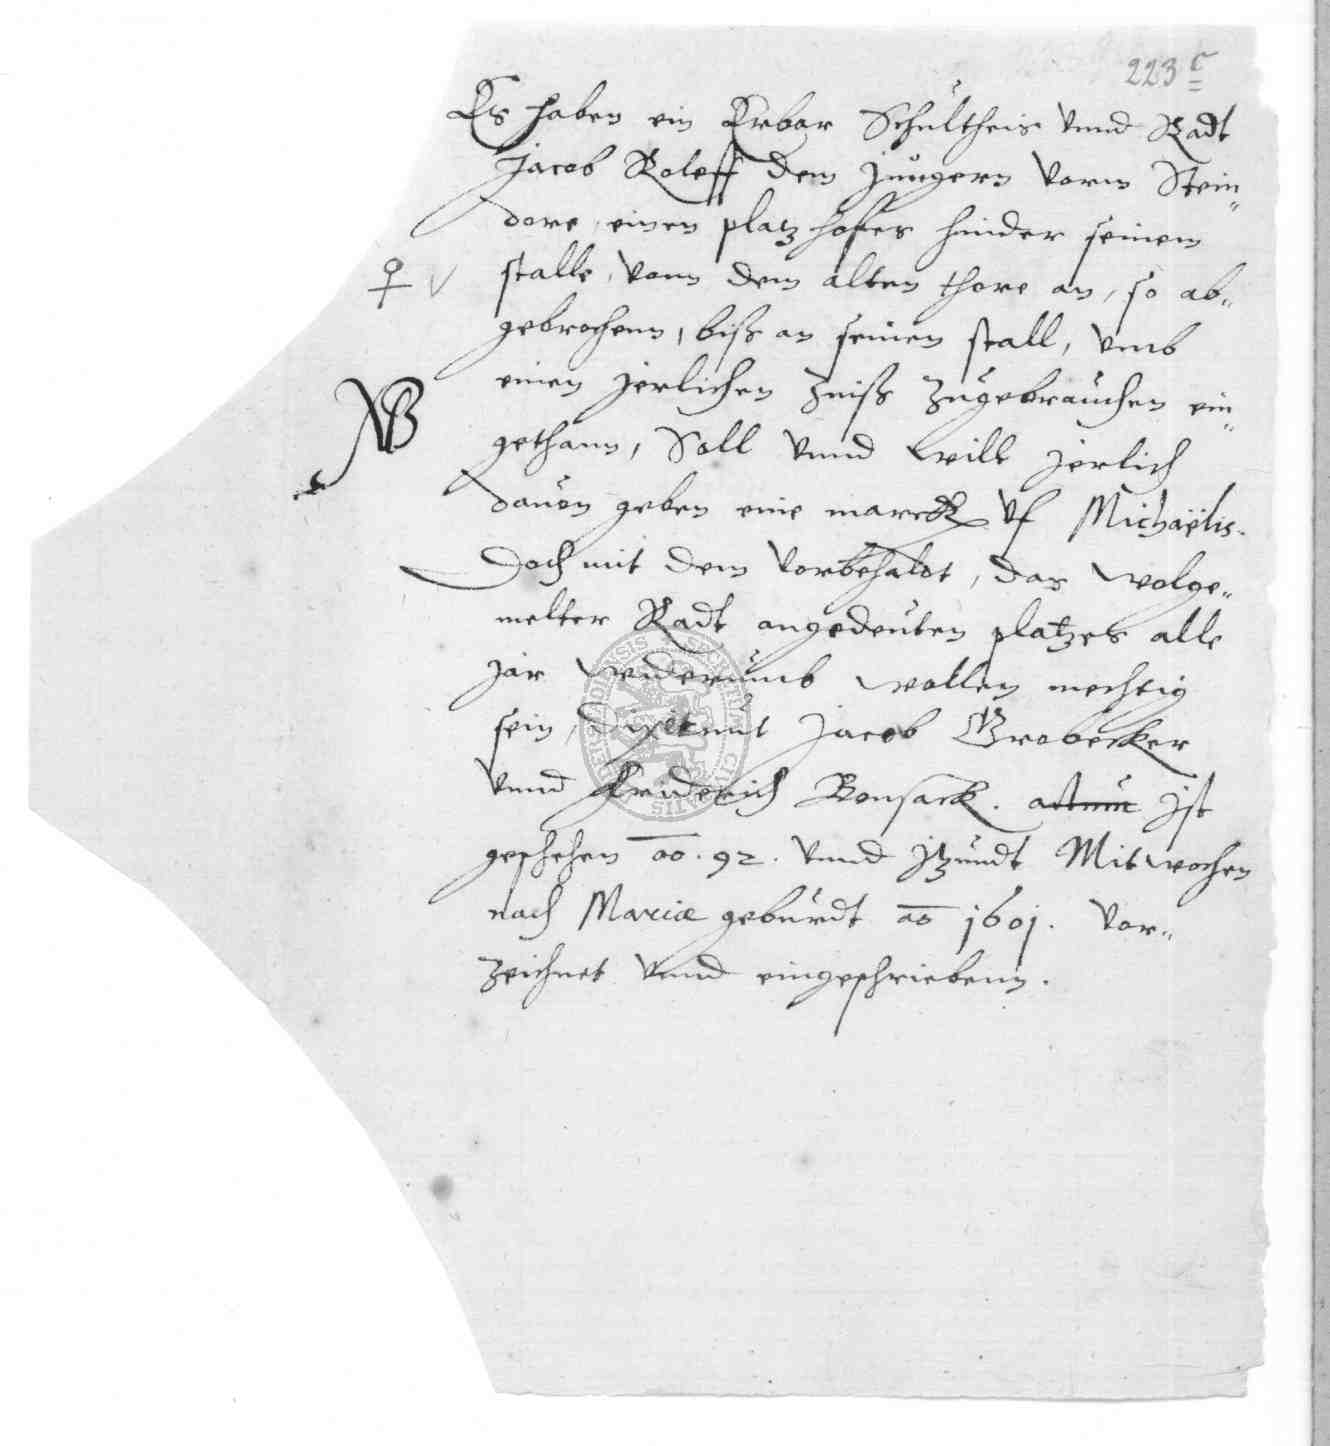 223 c
Es haben ein Erbar Schultheis vnnd Radt
Jacob Roleff dem jungern vorm Stein"
dore, einen platz hofes hinder seinem
stalle, vonn dem alten thore an, so ab"
gebrochenn, biss an seinen stall, vmb
einen jerlichen Zinss zugebrauchen ein"
NB
gethann, Soll vnnd will jerlich
dauon geben eine marck vf Michaëlis.
Doch mit dem vorbehaldt, das wolge"
melter Radt angedeuten platzes alle
jar widerumb wollen mechtig
sein, dixerunt Jacob Grobecker
vnnd Friderich Bonsack. actum Ist
geschehen ao. 92. vnnd Jtzundt Mitwochen
nach Mariæ geburdt ao 1601. vor"
zeichnet vnnd eingeschriebenn.